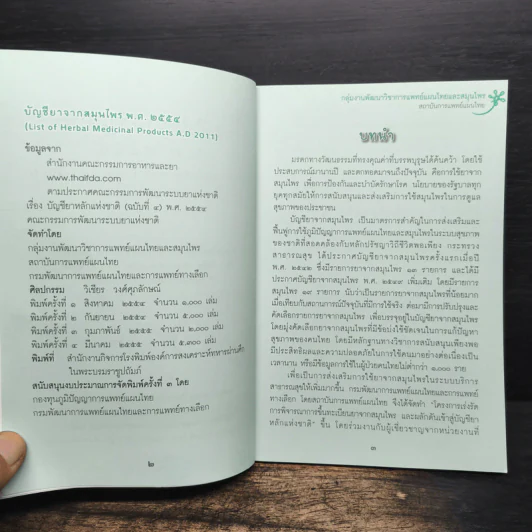 บัญชียาจากสมุนไพร พ.ศ. ๒๕๕๔
(List of Herbal Medicinal Products A.D 2011)
ข้อมูลจาก
สำนักงานคณะกรรมการอาหารและยา
www.thaifda.com
ตามประกาศคณะกรรมการพัฒนาระบบยาแห่งชาติ
เรื่อง บัญชียาหลักแห่งชาติ (ฉบับที่ ๔) พ.ศ. ๒๕๕๔
คณะกรรมการพัฒนาระบบยาแห่งชาติ
จัดทำโดย
กลุ่มงานพัฒนาวิชาการแพทย์แผนไทยและสมุนไพร
สถาบันการแพทย์แผนไทย
กรมพัฒนาการแพทย์แผนไทยและการแพทย์ทางเลือก
ศิลปกรรม วิเชียร วงศ์ศุภลักษณ์
พิมพ์ครั้งที่ ๑ สิงหาคม ๒๕๕๔ จำนวน ๑,๐๐๐ เล่ม
พิมพ์ครั้งที่ ๒ กันยายน ๒๕๕๔ จำนวน ๕,๐๐๐ เล่ม
พิมพ์ครั้งที่ ๓ กุมภาพันธ์ ๒๕๕๕ จำนวน ๒,๐๐๐ เล่ม
พิมพ์ครั้งที่ ๔ มีนาคม ๒๕๕๕ จำนวน ๕,๓๐๐ เล่ม
พิมพ์ที่ สำนักงานกิจการโรงพิมพ์องค์การสงเคราะห์ทหารผ่านศึก
ในพระบรมราชูปถัมภ์
สนับสนุนงบประมาณการจัดพิมพ์ครั้งที่ ๓ โดย
กองทุนภูมิปัญญาการแพทย์แผนไทย
กรมพัฒนาการแพทย์แผนไทยและการแพทย์ทางเลือก
๒
กลุ่มงานพัฒนาวิชาการแพทย์แผนไทยและสมุนไพร
สถาบันการแพทย์แผนไทย
บทนำ
มรดกทางวัฒนธรรมที่ทรงคุณค่าที่บรรพบุรุษได้ค้นคว้า โดยใช้
ประสบการณ์มานานปี และตกทอดมาจนถึงปัจจุบัน คือการใช้ยาจาก
สมุนไพร เพื่อการป้องกันและบำบัดรักษาโรค นโยบายของรัฐบาลทุก
ยุคทุกสมัยให้การสนับสนุนและส่งเสริมการใช้สมุนไพรในการดูแล
สุขภาพของประชาชน
บัญชียาจากสมุนไพร เป็นมาตรการสำคัญในการส่งเสริมและ
ฟื้นฟูการใช้ภูมิปัญญาการแพทย์แผนไทยและสมุนไพรในระบบสุขภาพ
ของชาติที่สอดคล้องกับหลักปรัชญาวิถีชีวิตพอเพียง กระทรวง
สาธารณสุข ได้ประกาศบัญชียาจากสมุนไพรครั้งแรกเมื่อปี
พ.ศ. ๒๕๔๒ ซึ่งมีรายการยาจากสมุนไพร ๑๑ รายการ และได้มี
ประกาศบัญชียาจากสมุนไพร พ.ศ. ๒๕๔๙ เพิ่มเติม โดยมีรายการยาจาก
สมุนไพร ๑๙ รายการ นับว่าเป็นรายการยาจากสมุนไพรที่น้อยมาก
เมื่อเทียบกับสถานการณ์ปัจจุบันที่มีการใช้จริง ต่อมามีการปรับปรุงและ
คัดเลือกรายการยาจากสมุนไพร เพื่อบรรจุอยู่ในบัญชียาจากสมุนไพร
โดยมุ่งคัดเลือกยาจากสมุนไพรที่มีข้อบ่งใช้ชัดเจนในการแก้ปัญหา
สุขภาพของคนไทย โดยมีหลักฐานทางวิชาการสนับสนุนเพียงพอ
มีประสิทธิผลและความปลอดภัยในการใช้ตามมาอย่างต่อเนื่องเป็น
เวลานาน หรือมีข้อมูลการใช้ในผู้ป่วยคนไทยไม่ต่ำกว่า ๑,๐๐๐ ราย
เพื่อเป็นการส่งเสริมการใช้ยาจากสมุนไพรในระบบบริการ
สาธารณสุขให้เพิ่มมากขึ้น กรมพัฒนาการแพทย์แผนไทยและการแพทย์
ทางเลือก โดยสถาบันการแพทย์แผนไทย จึงได้จัดทำ "โครงการเร่งรัด
การพิจารณาการขึ้นทะเบียนยาจากสมุนไพร และผลักดันเข้าสู่บัญชียา
หลักแห่งชาติ" ขึ้น โดยร่วมงานกับผู้เชี่ยวชาญจากหน่วยงานที่
๓